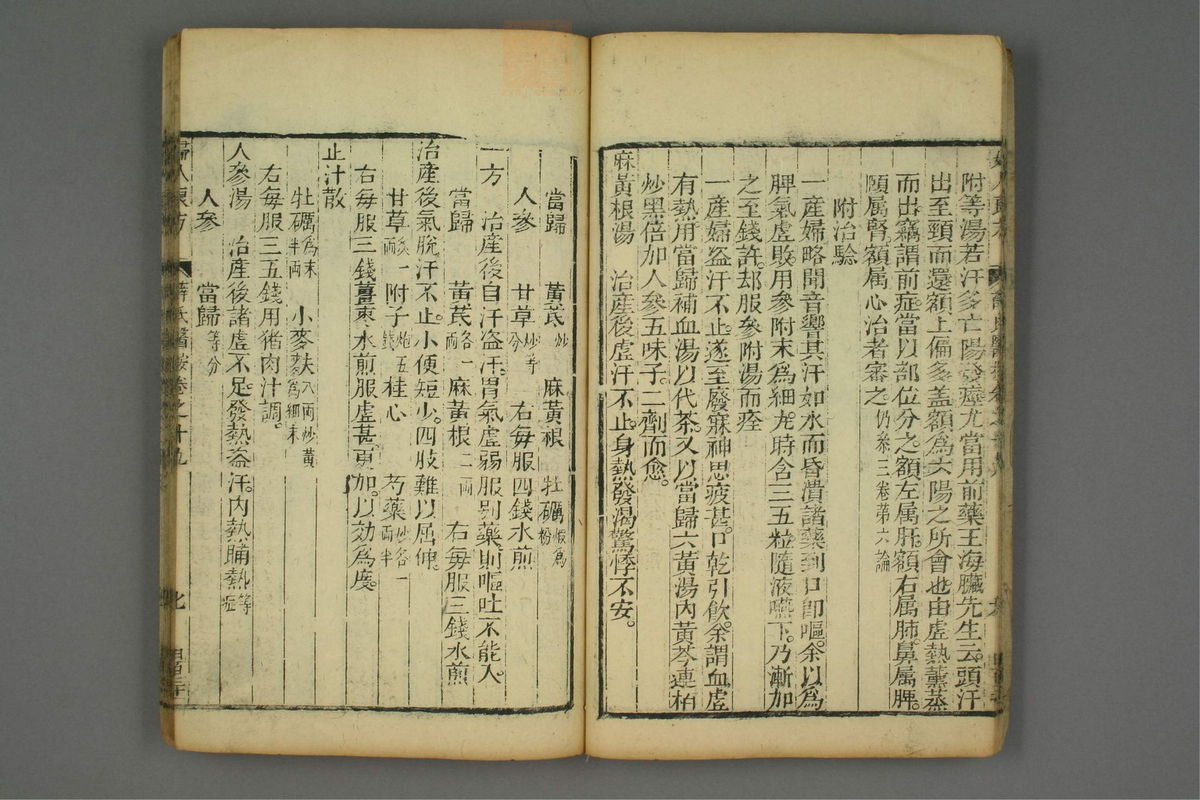 附等湯若汗多亡陽發痙尤當用前藥王海臟先生云頭汗
出至頸而還額上偏多盖額爲六陽之所會也由虛熱薰蒸
而出竊謂前症當以部位分之額左属肝額右属肺鼻属脾
頤属腎額属心治者審之仍叅三卷第六論
附治驗
一産婦略聞音響其汗如水而昏潰諸藥到口即嘔余以爲
脾氣虛敗用參附末爲細丸時含三五粒隨液嚥下乃漸加
之至錢許却服參附湯而痊
一産婦盜汗不止遂至廢寐神思疲甚口乾引飲余謂血虛
有熱用當歸補血湯以代茶又以當歸六黃湯内黃芩連柏
炒黑倍加人參五味子二劑而愈
麻黃根湯 治産後虛汗不止身熱發渴驚悸不安
當歸 黃芪炒 麻黃根 牡礪煅爲粉
人參 甘草炒等分 右每服四錢水煎
一方 治産後自汗盜汗胃氣虛弱服别藥則嘔吐不能入
當歸 黃芪各一兩 麻黃根二兩 右每服三錢水煎
治産後氣脫汗不止小便短少四肢難以屈伸
甘草炙一兩 附子炮五錢 桂心 芍藥炒各一兩半
右每服三錢薑棗水煎服虛甚更加以効爲度
止汁散
牡礪爲末半兩 小麥麩八兩炒黃爲細末
右每服三五錢用猪肉汁調
人參湯 治産後諸虛不足發熱盗汗内熱晡熱等症
人參 當歸等分
婦人良方 薛氏醫按卷之十九